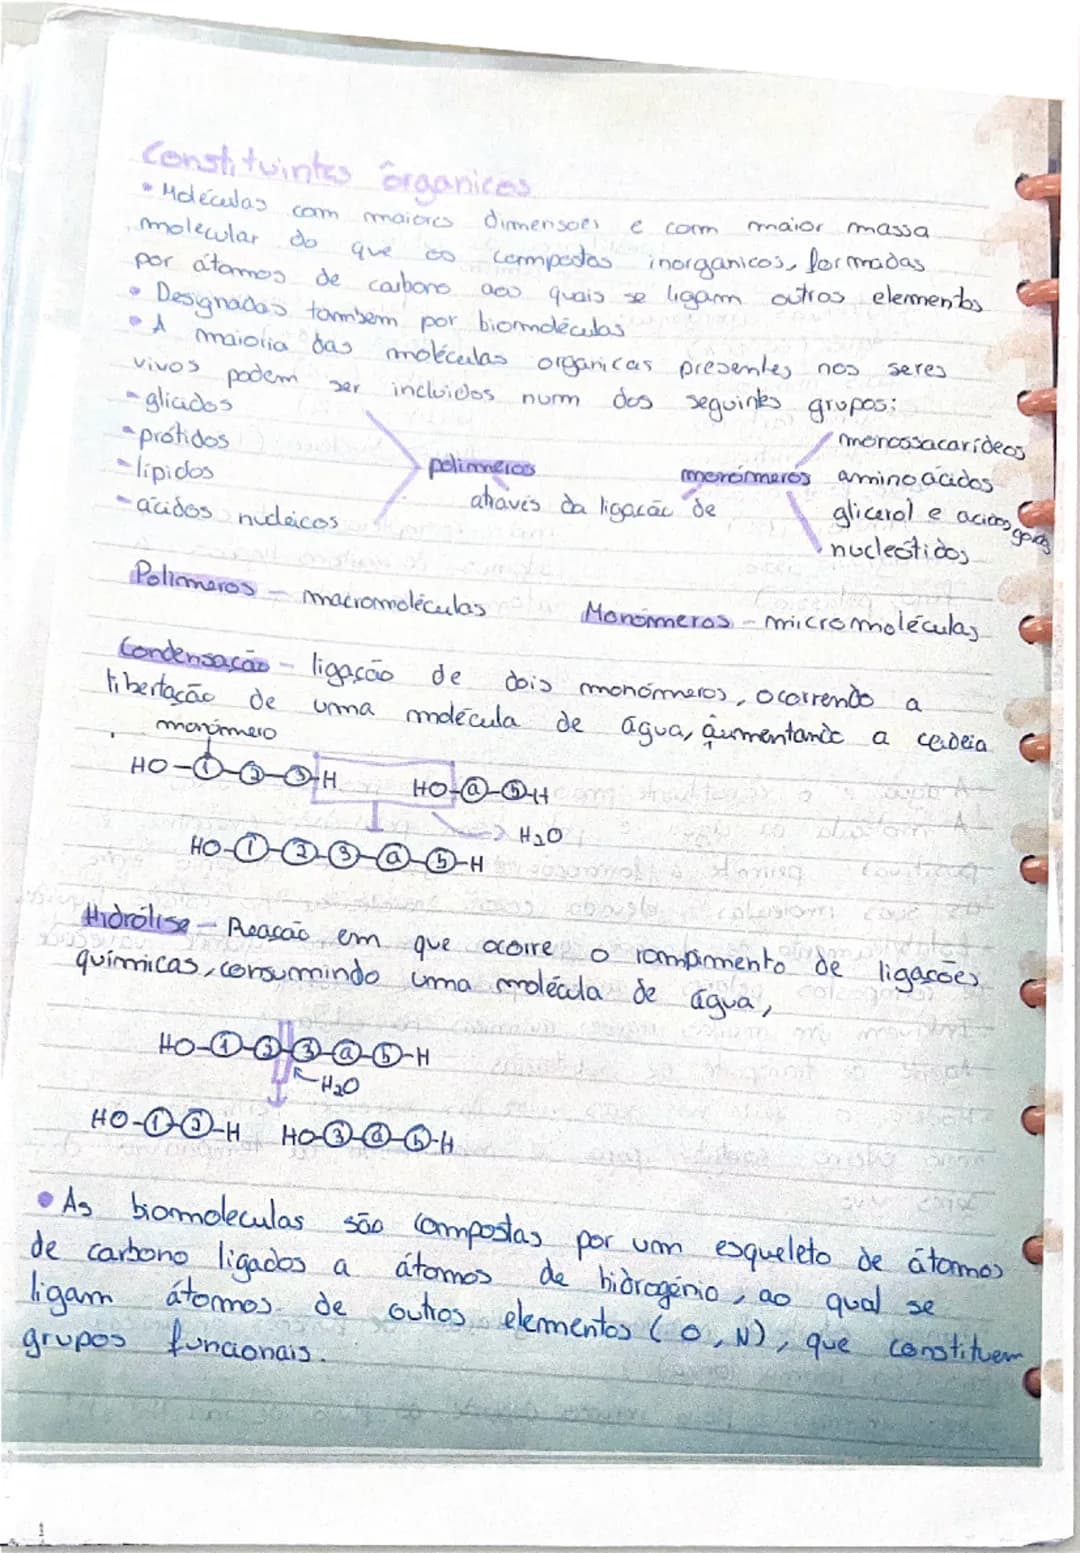 Constituintes ôrganicos
• Moléculas com maiores dimensões e com maior massa
molecular do que os compostos inorganicos, formadas
por átomos de carbono aos quais se ligam outros elementos
• Designadas também por biomoléculas
• A maioria das moléculas organicas presentes nos seres
vivos podem ser incluidos num dos seguintes grupos:
- glicidos
- prótidos
- lípidos
- acidos nucleicos
polimeros
através da ligação de
monómeros
monossacarídeos
aminoácidos
glicerol e acidos gordos
nucleótidos
Polimeros - macromoléculas
Monómeros - micromoléculas
Condensação - ligação de dois monómeros, ocorrendo a
libertação de uma molécula de água, aumentando a cadeia
monómero
HO-①-②-③-H HO-④-⑤-H
H₂O
HO-①-②-③-④-⑤-H
Hidrólise - Reação em que ocorre o rompimento de ligações
químicas, consumindo uma molécula de água,
HO-①-②-③-④-⑤-H
H₂O
HO-①-②-H HO-③-④-⑤-H
• As biomoleculas são compostas por um esqueleto de átomos
de carbono ligados a átomos de hidrogénio, ao qual se
ligam átomos de outros elementos (O, N), que constituem
grupos funcionais.
1